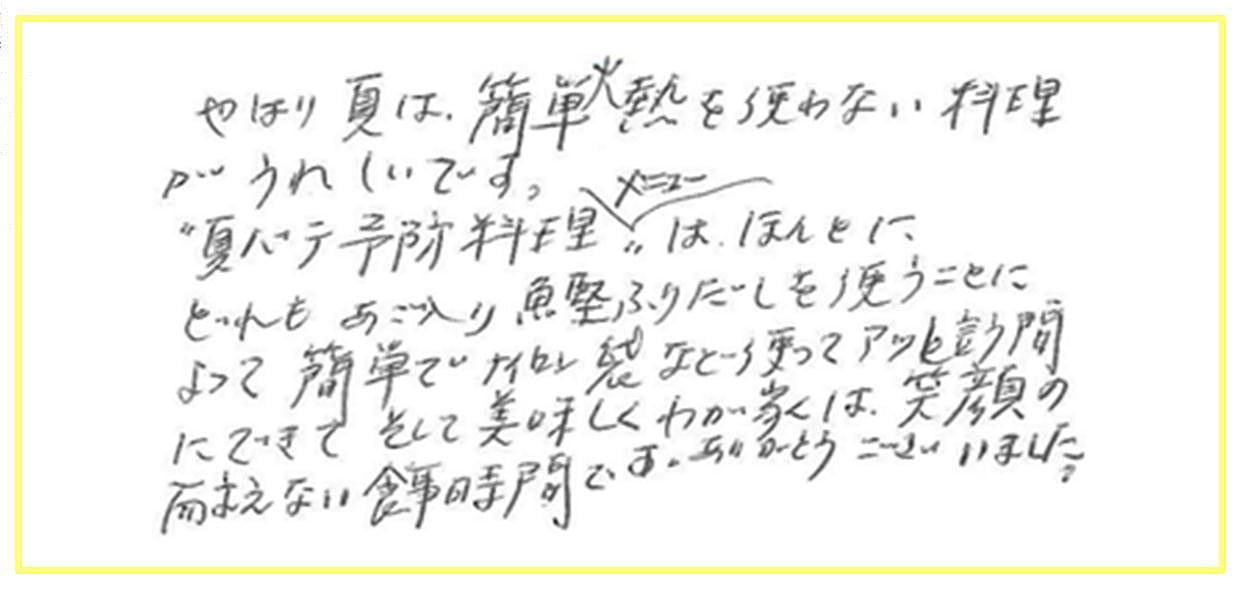 やはり夏は、簡単火熱を使わない料理
がうれしいです。
"夏バテ予防料理メニュー"は、ほんとに
どれもあご入り魚堅ふりだしを使うことに
よって簡単でナイロン袋などを使ってアッと言う間
にできて そして美味しくわが家は、笑顔の
耐えない食事時間です。ありがとうございました。